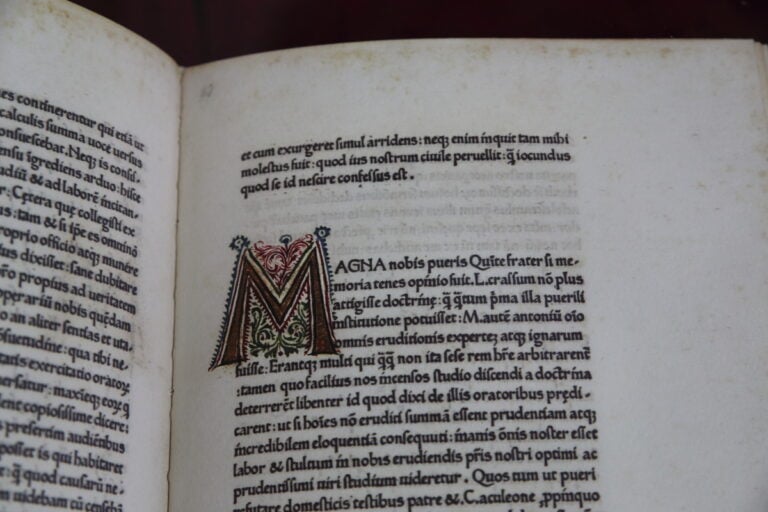 es continerentur qui etiã ut
calculis summa uoce uersus
onsuescebat. Neq; is consi-
ensu igrediens arduo: hisce
udiũ & ad laborẽ incitan-
: Cętera quę collegisti ex
us: tam & si ip̃e es omnino
roprio officio atq; munere
dixisset: sane dubitare
propius ad ueritatem
nobis quędam
o an aliter sentias et uta-
suetudine: qua tibi ne-
tatis exercitatio oratoꝝ
ersatur: maxieq; eoꝝ q̃
lent copiosissime dicere:
s presertim audiẽtibus
posset is qui habitaret
: q̃ quod causarũ ne-
m uidebam cũ
et cum exurgeret simul arridens: neq; enim inquit tam mihi
molestus fuit: quod ius nostrum ciuile peruellit: q̃ iocundus
quod se id nescire confessus est.
MAGNA nobis pueris Quĩte frater si me-
moria tenes opinio fuit. L. crassum nõ plus
attigisse doctrinę: q̃ q̃tum p̃ma illa puerili
institutione potuisset: M. autẽ antoniũ oĩo
omnis eruditionis expertez atq; ignarum
fuisse: Erantq; multi qui q̃q̃ non ita sese rem hr̃e arbitrarent
:tamen quo facilius nos incensos studio discendi a doctrina
deterrerẽt libenter id quod dixi de illis oratoribus prędi-
carent: ut si hoĩes nõ eruditi summã essent prudentiam atq;
incredibilem eloquentiã consequuti: inanis õnis noster esset
labor & stultum in nobis erudiendis pr̃is nostri optimi ac
prudentissimi uiri studium uideretur. Quos tum ut pueri
refutare domesticis testibus patre & C. aculeone ꝓpinquo